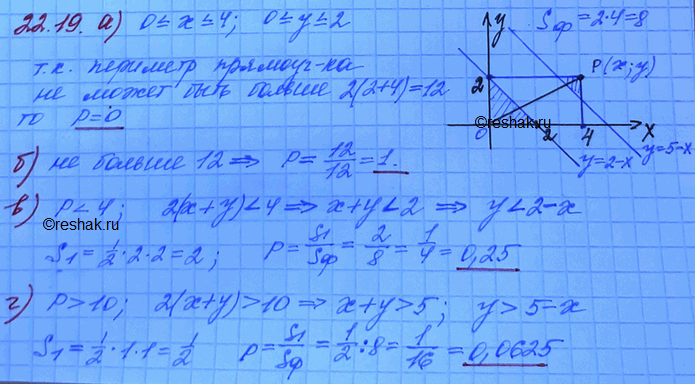 22.19. а) 0 ≤ x ≤ 4; 0 ≤ y ≤ 2
Sф = 2·4 = 8
т.к. периметр прямоуг-ка
не может быть больше 2(2+4)=12
то p=0
©reshak.ru
y
P(x;y)
2
0
©reshak.ru
2
4
x
y=2-x
y=5-x
б) не больше 12 ⇒ p = 12/12 = 1.
в) P < 4; 2(x+y) < 4 ⇒ x+y < 2 ⇒ y < 2-x
©reshak.ru
S1 = 1/2 · 2 · 2 = 2; p = S1/Sф = 2/8 = 1/4 = 0,25
г) P > 10; 2(x+y) > 10 ⇒ x+y > 5; y > 5-x
S1 = 1/2 · 1 · 1 = 1/2 p = S1/Sф = 1/2 : 8 = 1/16 = 0,0625